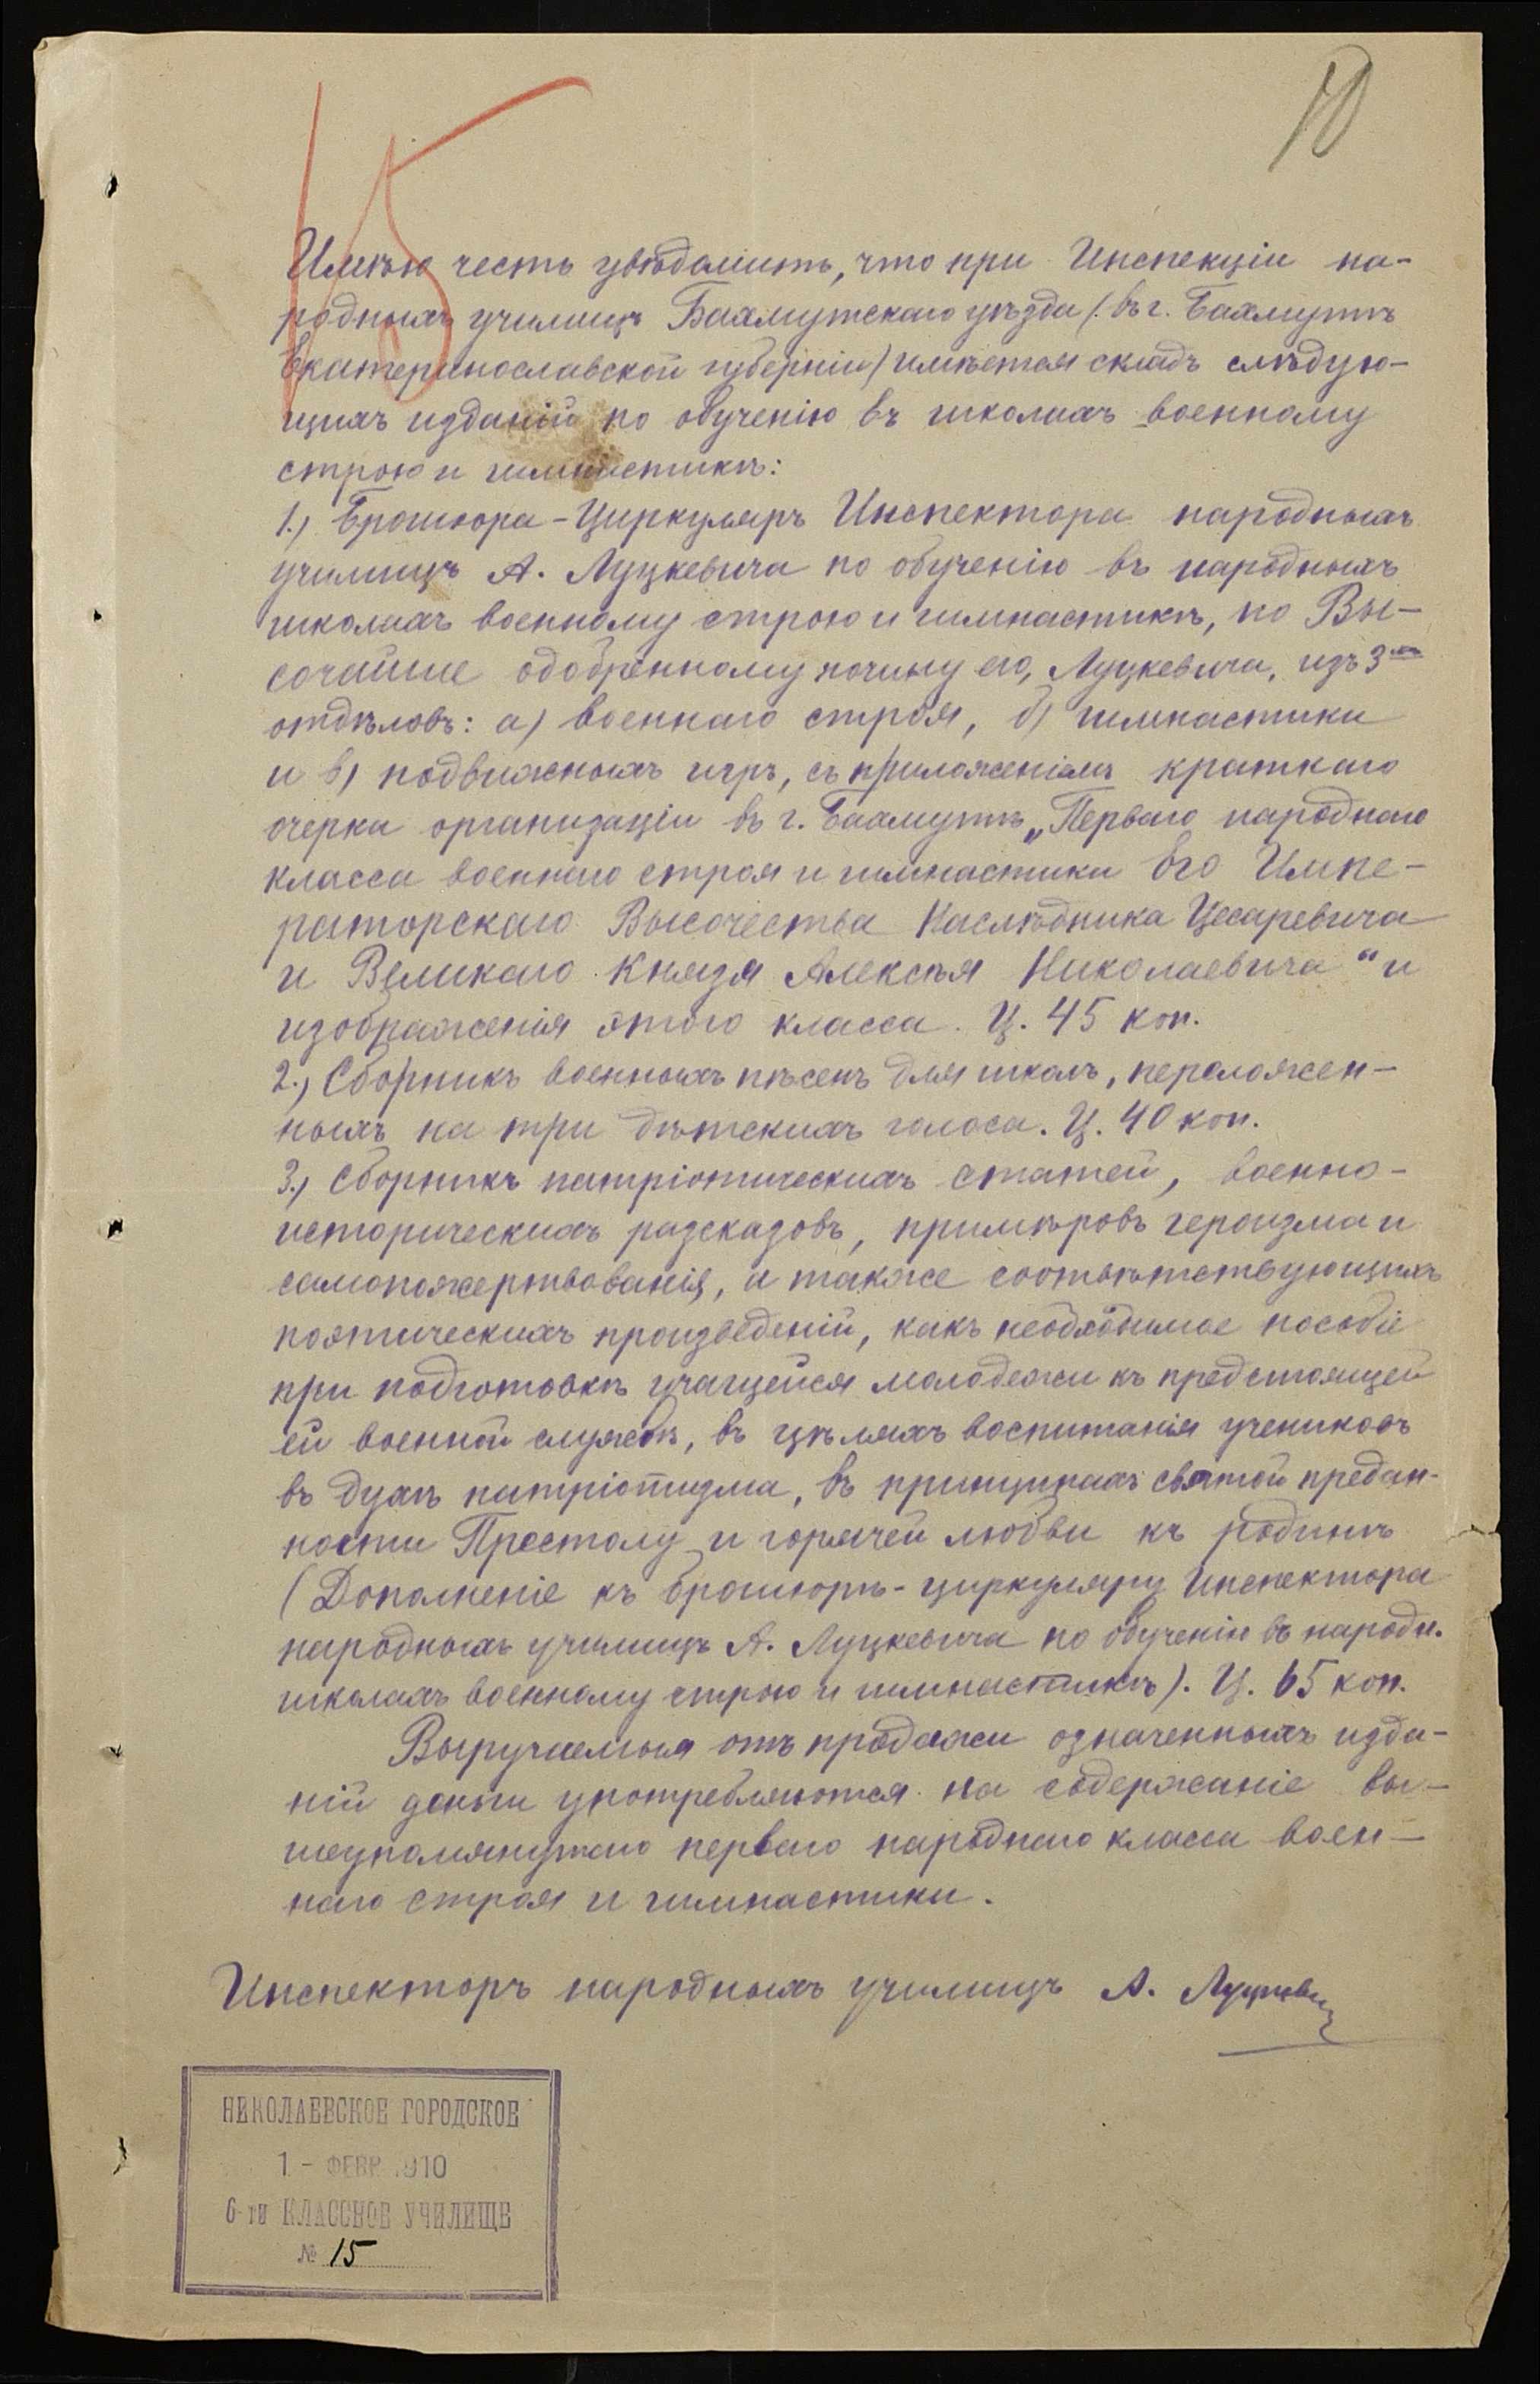 15
10
Имѣю честь увѣдомить, что при Инспекціи на-
родныхъ училищъ Бахмутскаго уѣзда (: въ г. Бахмутѣ
Екатеринославской губерніи) имѣется складъ слѣдую-
щихъ изданій по обученію въ школахъ военному
строю и гимнастикѣ:
1.) Брошюра-Циркуляръ Инспектора народныхъ
училищъ А. Луцкевича по обученію въ народныхъ
школахъ военному строю и гимнастикѣ, по Вы-
сочайше одобренному почину его, Луцкевича, изъ 3-хъ
отдѣловъ: а) военнаго строя, б) гимнастики
и в) подвижныхъ игръ, съ приложеніемъ краткаго
очерка организаціи въ г. Бахмутѣ „Перваго народнаго
класса военнаго строя и гимнастики Его Импе-
раторскаго Высочества Наслѣдника Цесаревича
и Великаго Князя Алексѣя Николаевича“ и
изображенія этого класса. Ц. 45 коп.
2.) Сборникъ военныхъ пѣсенъ для школъ, переложен-
ныхъ на три дѣтскихъ голоса. Ц. 40 коп.
3.) Сборникъ патріотическихъ статей, военно-
историческихъ разсказовъ, примѣровъ героизма и
самопожертвованія, а также соотвѣтствующихъ
поэтическихъ произведеній, какъ необходимое пособіе
при подготовкѣ учащейся молодежи къ предстоящей
ей военной службѣ, въ цѣляхъ воспитанія учениковъ
въ духѣ патріотизма, въ принципахъ святой предан-
ности Престолу и горячей любви къ родинѣ
(Дополненіе къ брошюрѣ-циркуляру Инспектора
народныхъ училищъ А. Луцкевича по обученію въ народн.
школахъ военному строю и гимнастикѣ). Ц. 65 коп.
Выручаемыя отъ продажи означенныхъ изда-
ній деньги употребляются на содержаніе вы-
шеупомянутаго перваго народнаго класса воен-
наго строя и гимнастики.
Инспекторъ народныхъ училищъ А. Луцкевич
НИКОЛАЕВСКОЕ ГОРОДСКОЕ
1 - ФЕВР 1910
6-ти КЛАССНОЕ УЧИЛИЩЕ
№ 15